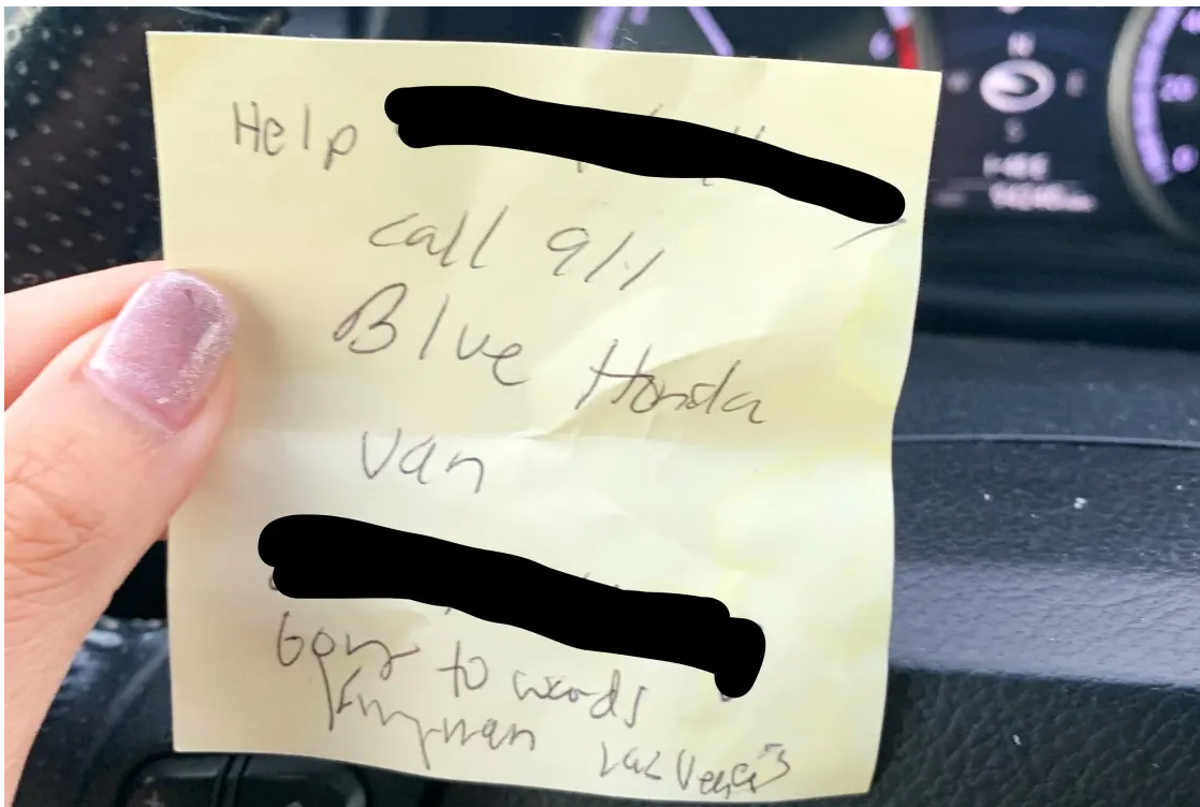 Help
call 911
Blue Honda
van
Going to wards
Kingman Las Vegas
N
E
S
20